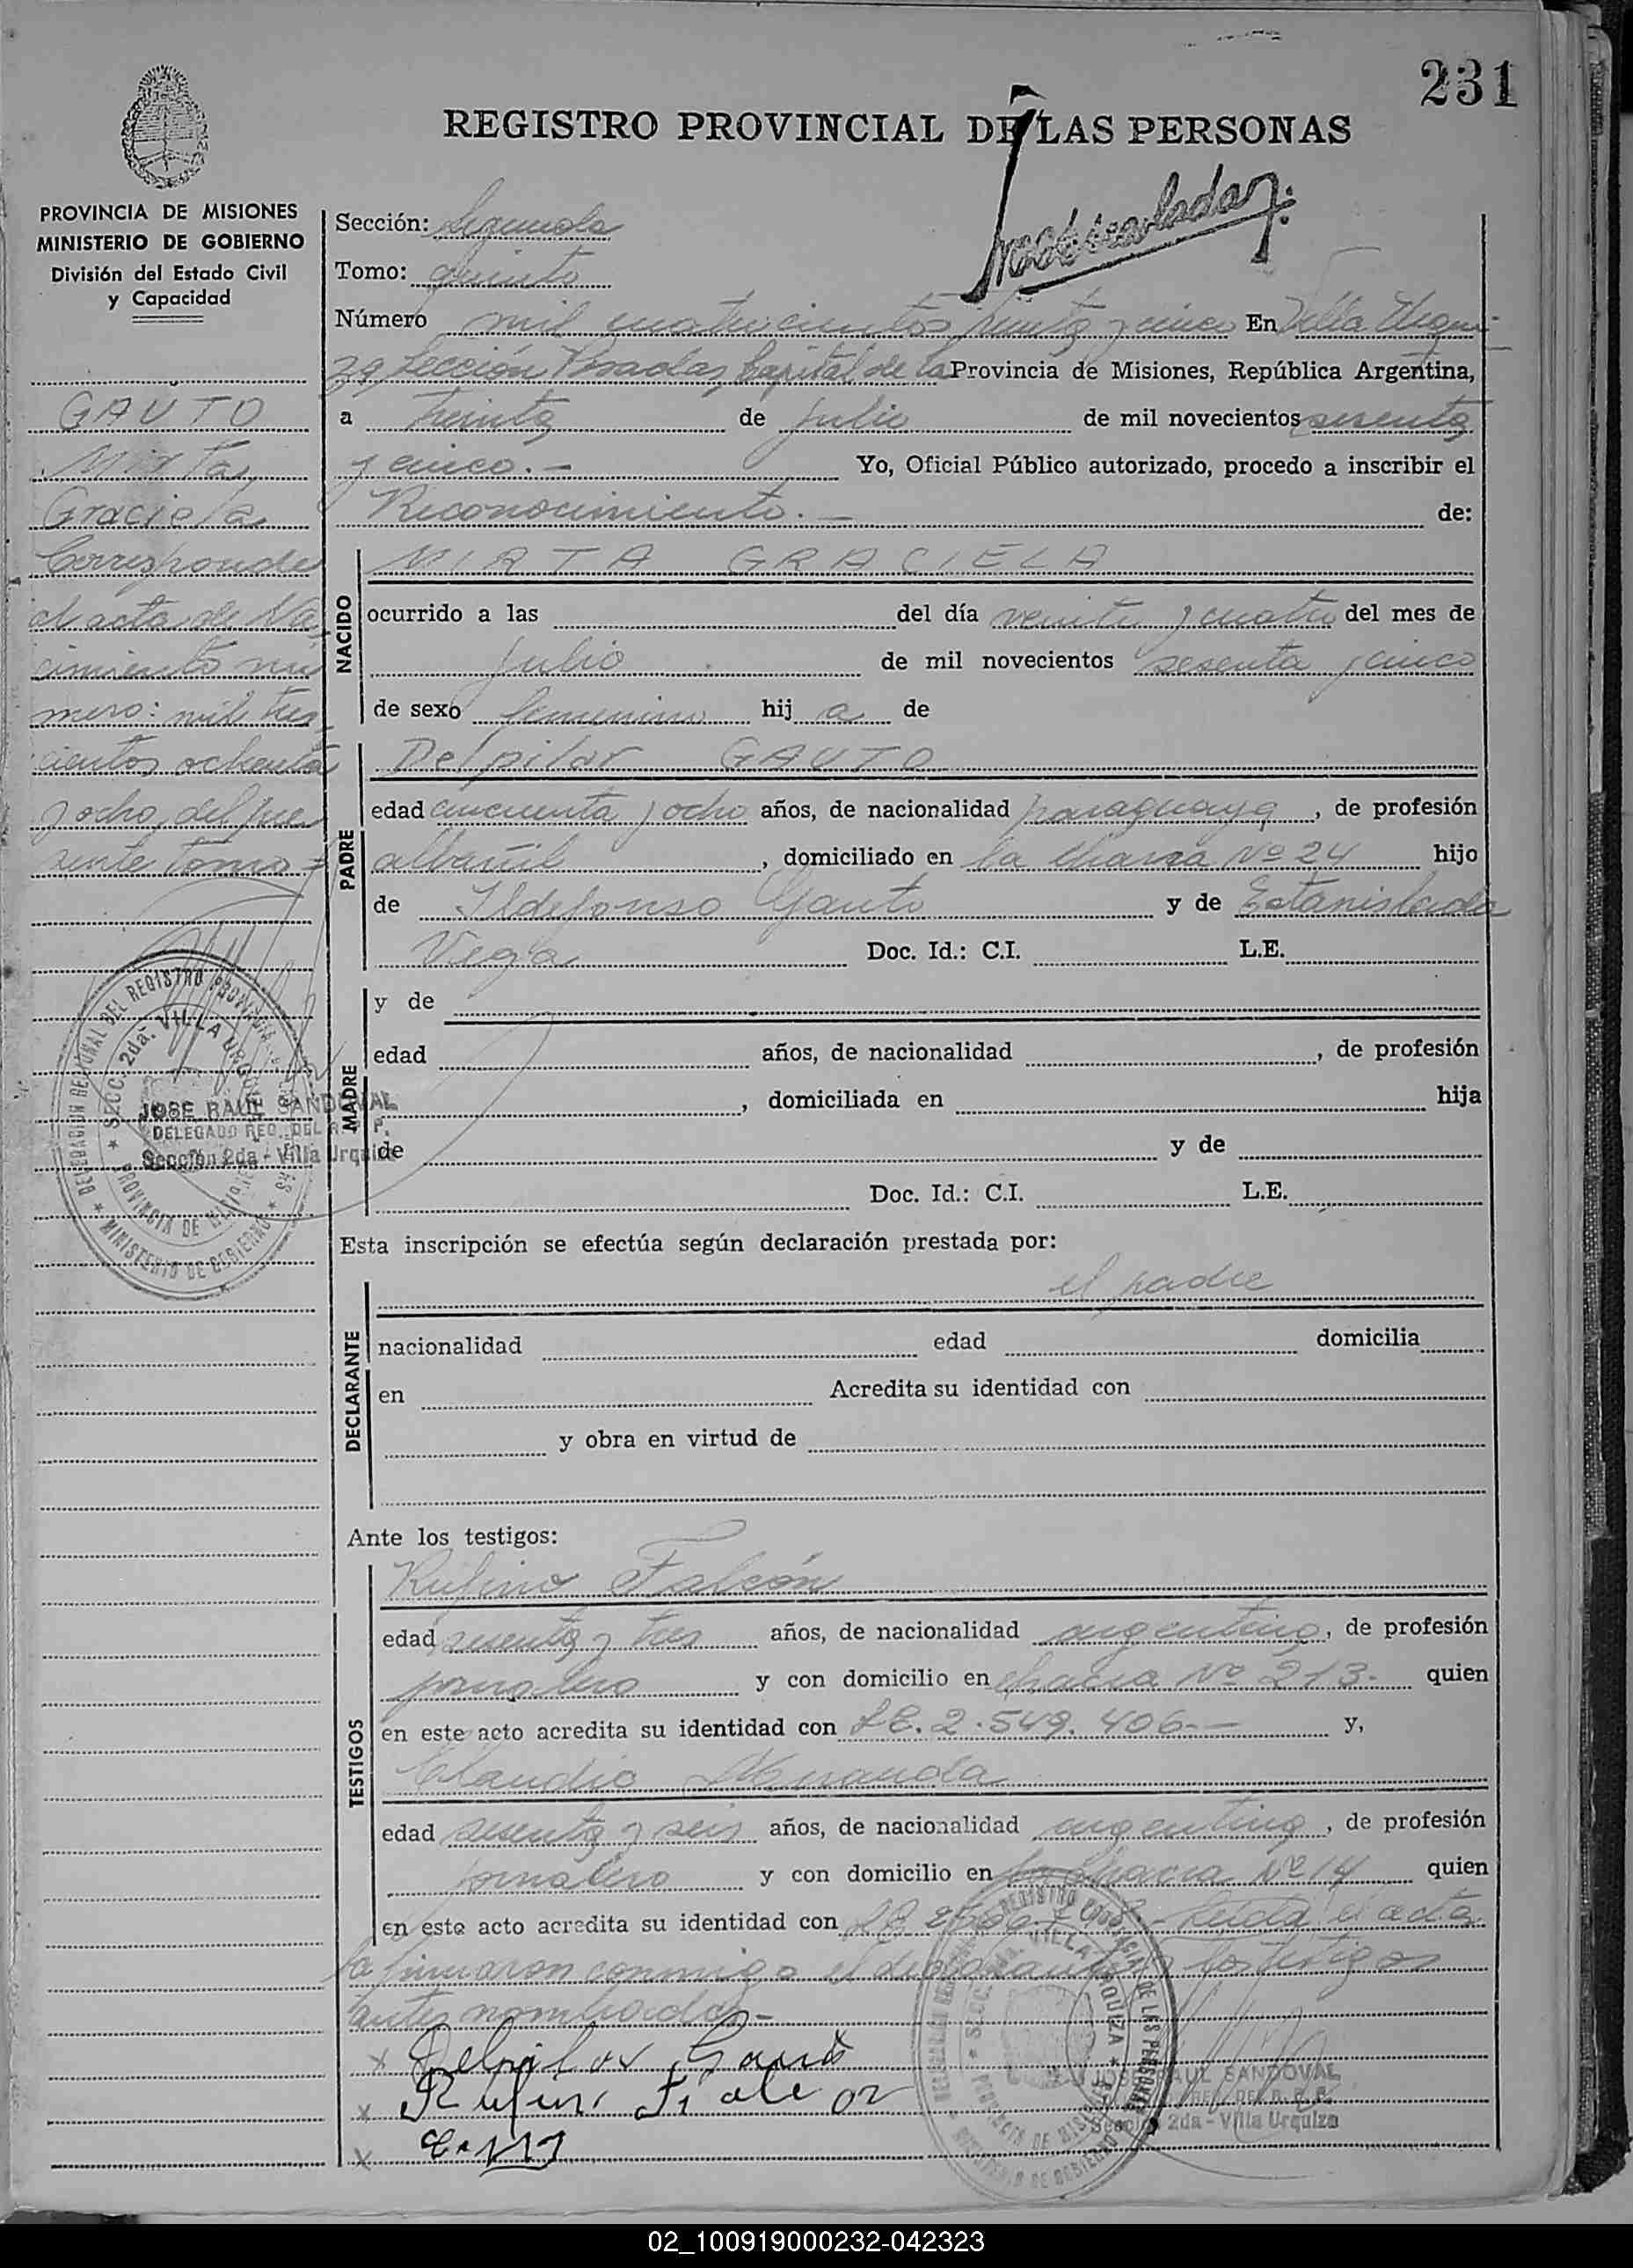 231
REGISTRO PROVINCIAL DE LAS PERSONAS
PROVINCIA DE MISIONES
MINISTERIO DE GOBIERNO
División del Estado Civil
y Capacidad
GAUTO
Mirta
Graciela
Corresponde
al acta de Na
cimiento nú
mero: mil tres
cientos ochenta
y ocho, del pre
sente tomo
Sección: Segunda
Tomo: quinto
Número mil cuatrocientos treinta y cinco En Villa Urqui-
za Sección Posadas, Capital de la Provincia de Misiones, República Argentina,
a treinta de julio de mil novecientos sesenta
y cinco.- Yo, Oficial Público autorizado, procedo a inscribir el
Reconocimiento.- de:
NACIDO
MIRTA GRACIELA
ocurrido a las del día veinte y cuatro del mes de
julio de mil novecientos sesenta y cinco
de sexo femenino hij a de
PADRE
Delpilar GAUTO
edad cincuenta y ocho años, de nacionalidad paraguaya, de profesión
albañil, domiciliado en la chacra Nº 24 hijo
de Ildefonso Gauto y de Estanislada
Vega Doc. Id.: C.I. L.E.
MADRE
y de
edad años, de nacionalidad , de profesión
, domiciliada en hija
de y de
Doc. Id.: C.I. L.E.
DELEGACION REGIONAL DEL REGISTRO PROVINCIAL DE LAS PERSONAS
SECC. 2da. VILLA URQUIZA
PROVINCIA DE MISIONES
MINISTERIO DE GOBIERNO
JOSE RAUL SANDOVAL
DELEGADO REG. DEL R. P. P.
Sección 2da - Villa Urquiza
Esta inscripción se efectúa según declaración prestada por:
DECLARANTE
el padre
nacionalidad edad domicilia
en Acredita su identidad con
y obra en virtud de
Ante los testigos:
TESTIGOS
Rufino Falcón
edad sesenta y tres años, de nacionalidad argentina, de profesión
jornalero y con domicilio en chacra Nº 213- quien
en este acto acredita su identidad con LE. 2.549.406-- y,
Claudio Miranda
edad sesenta y seis años, de nacionalidad argentina, de profesión
jornalero y con domicilio en la chacra Nº 14 quien
en este acto acredita su identidad con Leída el acta
la firmaron conmigo el declarante y los testigos
antes nombrados.-
Delpilar Gauto
Rufino Falcon
JOSE RAUL SANDOVAL
Sección 2da - Villa Urquiza
02_100919000232-042323